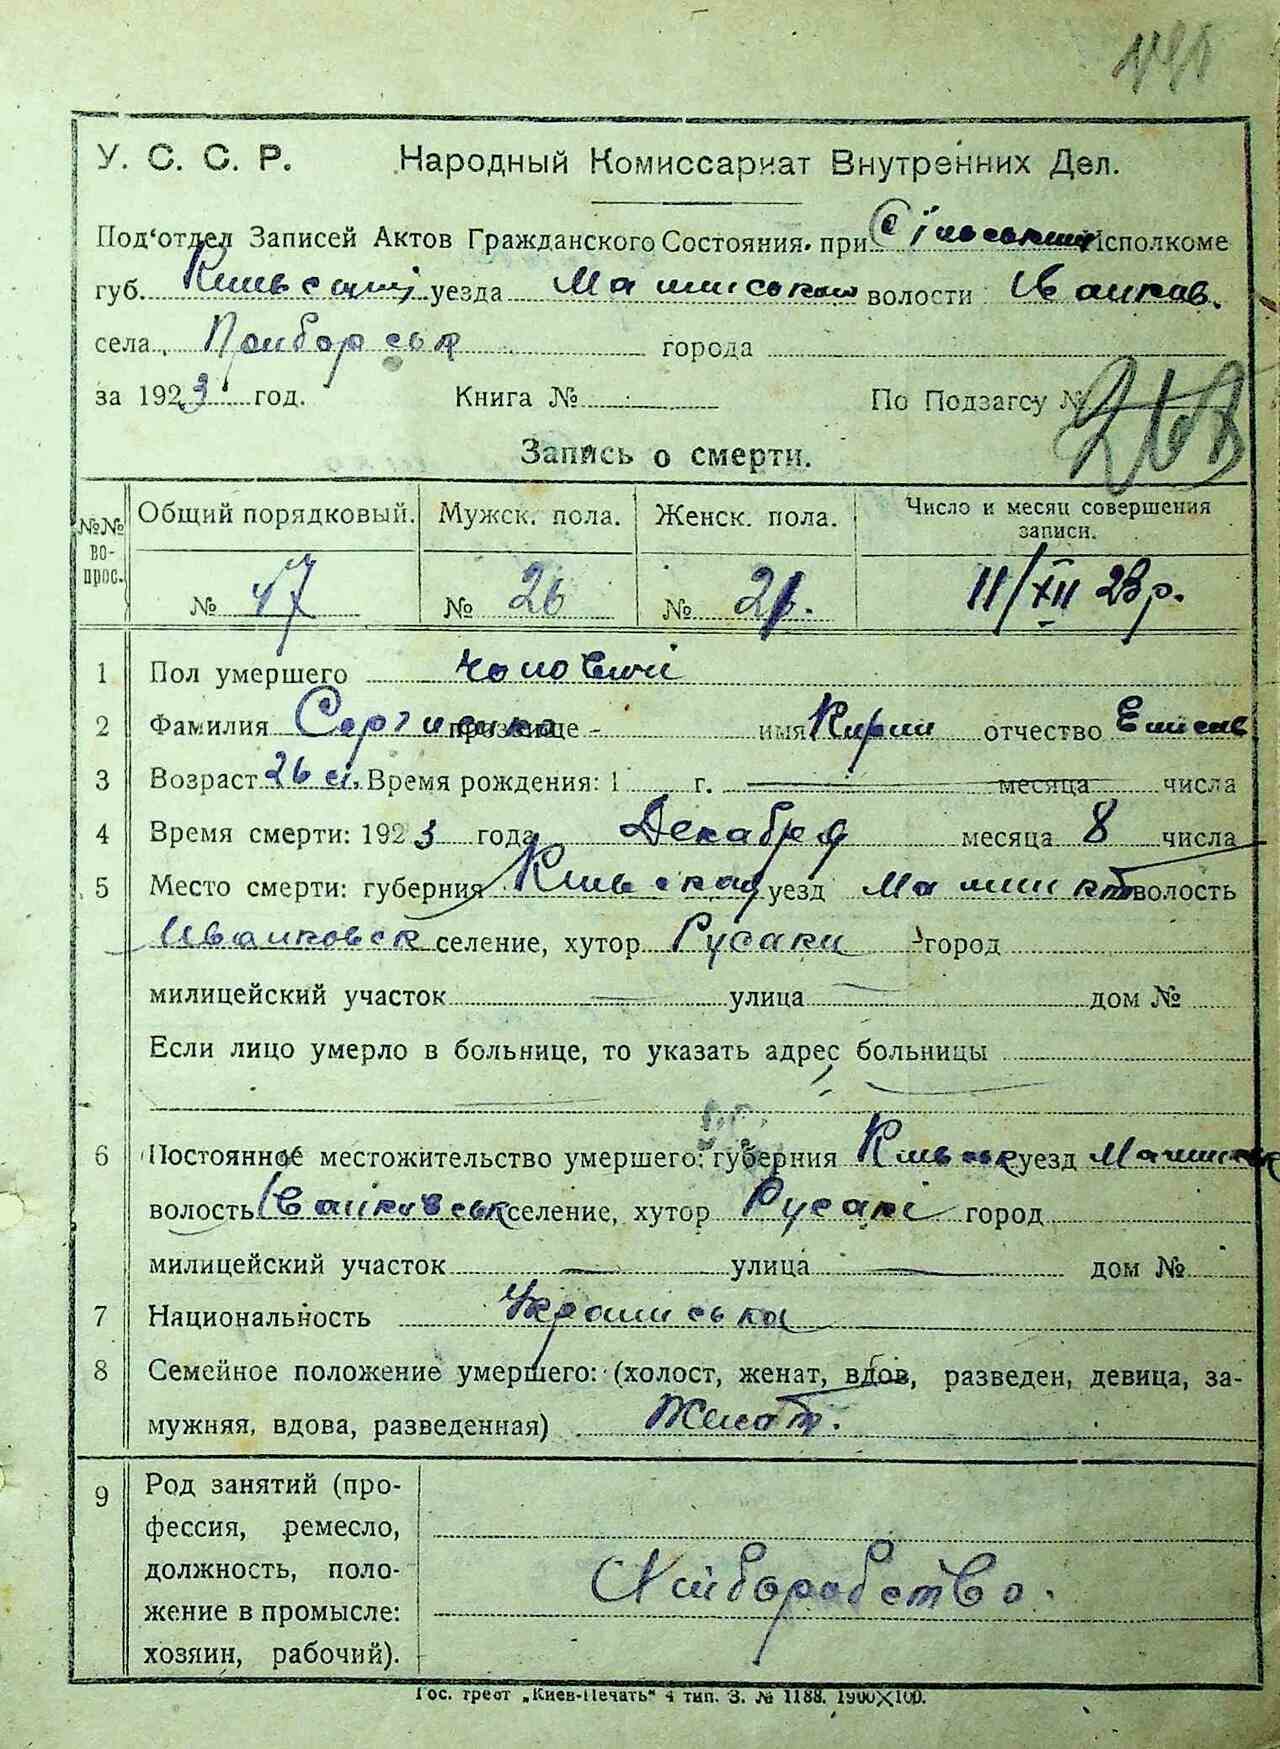 У. С. С. Р. Народный Комиссариат Внутренних Дел.
Под‘отдел Записей Актов Гражданского Состояния. при Сільським Исполкоме
губ. уезда волости Іванков.
села города
за 1923 год. Книга № По Подзагсу №
Запись о смерти.
№№ вопрос. Общий порядковый. Мужск. пола. Женск. пола. Число и месяц совершения записи.
№ 47 № 26 № 21. 11/XII 23 р.
1 Пол умершего чоловичі
2 Фамилия прозвище - имя отчество
3 Возраст 26 л. Время рождения: 1 г. месяца числа
4 Время смерти: 1923 года Декабря месяца 8 числа
5 Место смерти: губерния Київская уезд волость
Иванковск селение, хутор Русаки город
милицейский участок улица дом №
Если лицо умерло в больнице, то указать адрес больницы
6 Постоянное местожительство умершего: губерния Київськ уезд
волость Іванківськ селение, хутор Русакі город
милицейский участок улица дом №
7 Национальность Українська
8 Семейное положение умершего: (холост, женат, вдов, разведен, девица, за-
мужняя, вдова, разведенная) Женат.
9 Род занятий (про-
фессия, ремесло,
должность, поло-
жение в промысле:
хозяин, рабочий).
Хліборобство.
Гос. трест „Киев-Печать“ 4 тип. З. № 1188. 1900X100.